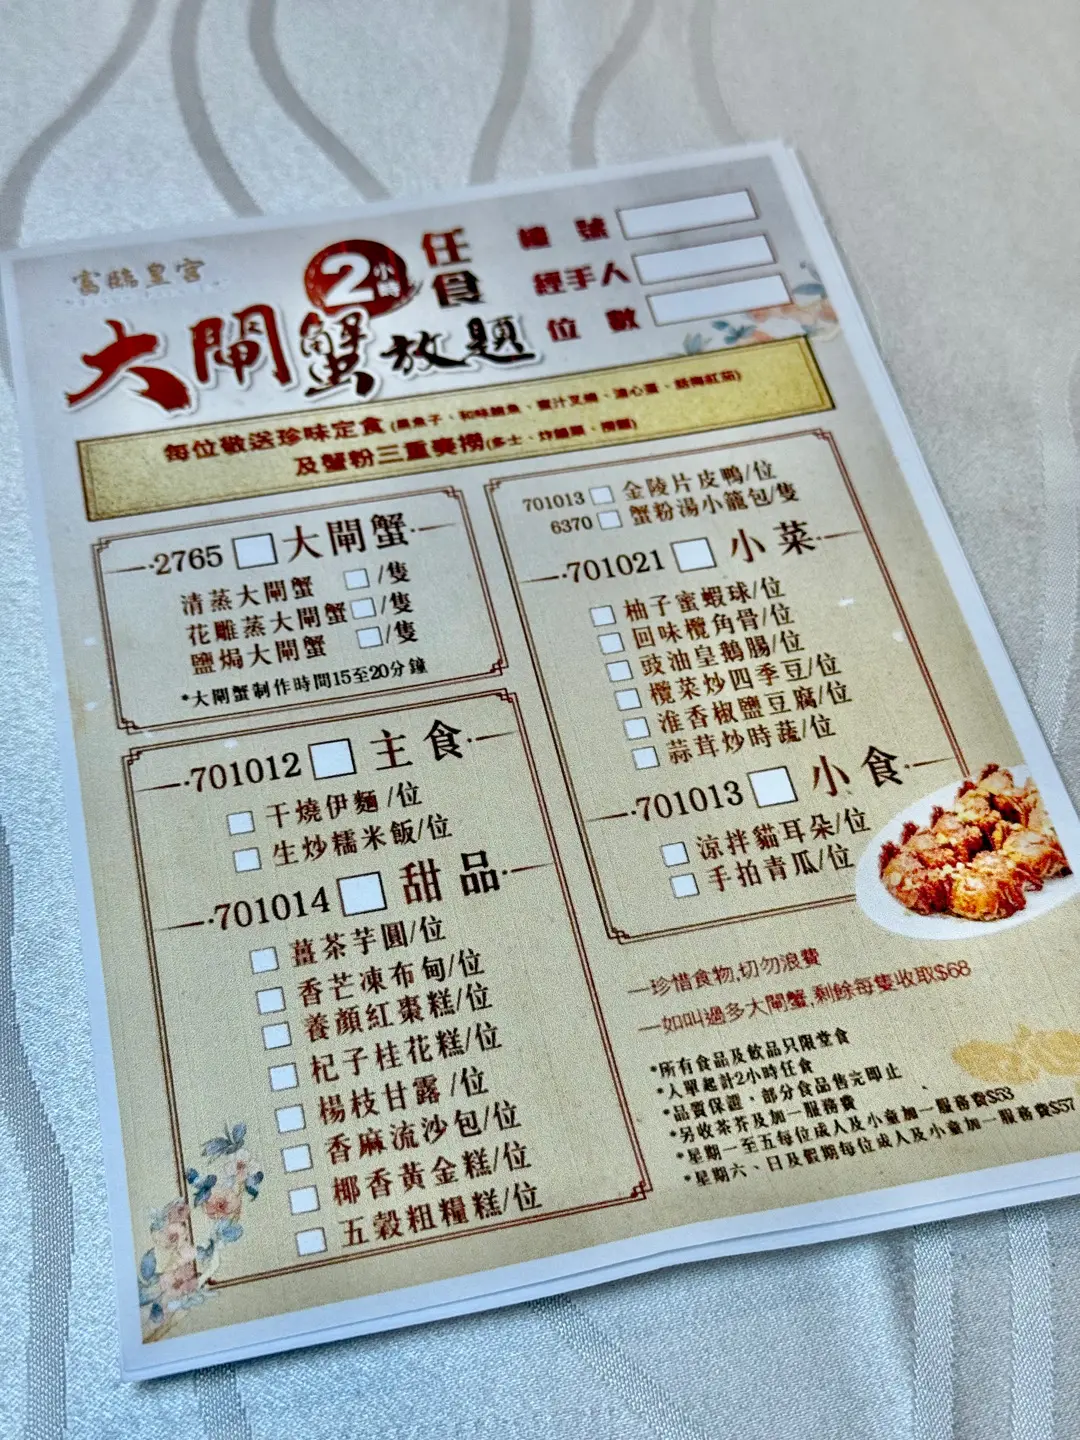 富臨皇宮
2小時
任食
大閘蟹放題
檯號
經手人
位數
每位敬送珍味定食(黑魚子、和味鮑魚、蜜汁叉燒、溏心蛋、話梅紅茄)
及蟹粉三重奏撈(多士、炸饅頭、撈麵)
2765 大閘蟹
清蒸大閘蟹 /隻
花雕蒸大閘蟹 /隻
鹽焗大閘蟹 /隻
*大閘蟹制作時間15至20分鐘
701012 主食
干燒伊麵/位
生炒糯米飯/位
701014 甜品
薑茶芋圓/位
香芒凍布甸/位
養顏紅棗糕/位
杞子桂花糕/位
楊枝甘露/位
香麻流沙包/位
椰香黃金糕/位
五穀粗糧糕/位
701013 金陵片皮鴨/位
6370 蟹粉湯小籠包/隻
701021 小菜
柚子蜜蝦球/位
回味欖角骨/位
豉油皇鵝腸/位
欖菜炒四季豆/位
淮香椒鹽豆腐/位
蒜茸炒時蔬/位
701013 小食
涼拌貓耳朵/位
手拍青瓜/位
—珍惜食物,切勿浪費
—如叫過多大閘蟹,剩餘每隻收取$68
*所有食品及飲品只限堂食
*入單起計2小時任食
*品質保證，部分食品售完即止
*另收茶芥及加一服務費
*星期一至五每位成人及小童加一服務費$53
*星期六、日及假期每位成人及小童加一服務費$57